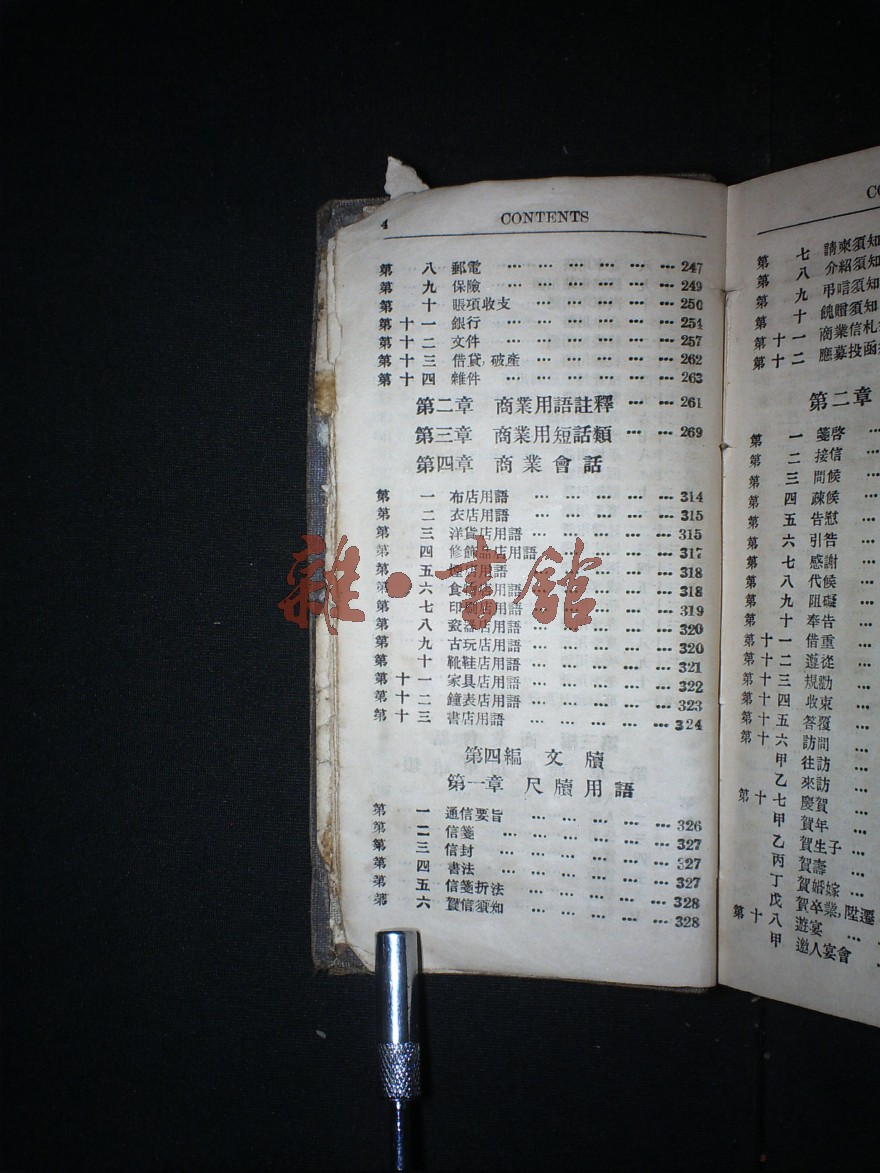 4 CONTENTS
第 八 郵電 … … … … … … 247
第 九 保險 … … … … … … 249
第 十 賬項收支 … … … … … 250
第十一 銀行 … … … … … … 254
第十二 文件 … … … … … … 257
第十三 借貸,破產 … … … … … 262
第十四 雜件 … … … … … … 263
第二章 商業用語註釋 … … 261
第三章 商業用短話類 … … 269
第四章 商業會話
第 一 布店用語 … … … … … 314
第 二 衣店用語 … … … … … 315
第 三 洋貨店用語 … … … … 315
第 四 修飾品店用語 … … … … 317
第 五 煙店用語 … … … … … 318
第 六 食物店用語 … … … … 318
第 七 印刷店用語 … … … … 319
第 八 瓷器店用語 … … … … 320
第 九 古玩店用語 … … … … 320
第 十 靴鞋店用語 … … … … 321
第十一 家具店用語 … … … … 322
第十二 鐘表店用語 … … … … 323
第十三 書店用語 … … … … … 324
第四編 文牘
第一章 尺牘用語
第 一 通信要旨 … … … … … 326
第 二 信箋 … … … … … … 327
第 三 信封 … … … … … … 327
第 四 書法 … … … … … … 327
第 五 信箋折法 … … … … … 328
第 六 賀信須知 … … … … … 328
雜·書館
第 七 請柬須知
第 八 介紹須知
第 九 弔唁須知
第 十 餽贈須知
第十一 商業信札
第十二 應募投函
第二章
第 一 箋啓 …
第 二 接信 …
第 三 問候 …
第 四 疎候 …
第 五 告慰 …
第 六 引咎 …
第 七 感謝 …
第 八 代候 …
第 九 阻礙 …
第 十 奉告 …
第十一 借重 …
第十二 遵從 …
第十三 規勸 …
第十四 收束 …
第十五 答覆 …
第十六 訪問 …
甲 往訪 …
乙 來訪 …
第十七 慶賀 …
甲 賀年 …
乙 賀生子 …
丙 賀壽 …
丁 賀婚嫁 …
戊 賀卒業,陞遷
第十八 遊宴 …
甲 邀人宴會